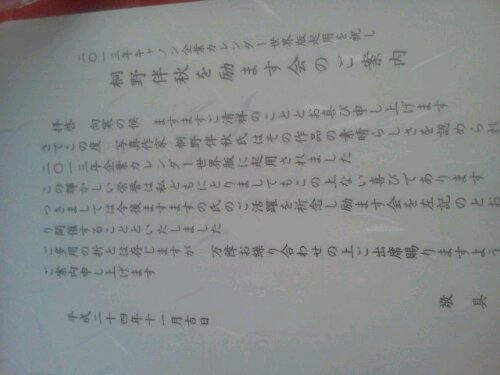 二〇一三年キャノン企業カレンダー世界版起用を祝し
桐野伴秋を励ます会のご案内
拝啓　向寒の候　ますますご清祥のこととお喜び申し上げます
さてこの度　写真作家　桐野伴秋氏はその作品の素晴らしさを認められ
二〇一三年企業カレンダー世界版に起用されました
この輝かしい栄誉は私どもにとりましてもこの上ない喜びであります
つきましては今後ますますの氏のご活躍を祈念し励ます会を左記のとお
り開催することといたしました
ご多用の折とは存じますが　万障お繰り合わせの上ご出席賜りますよう
ご案内申し上げます
敬　具
平成二十四年十一月吉日